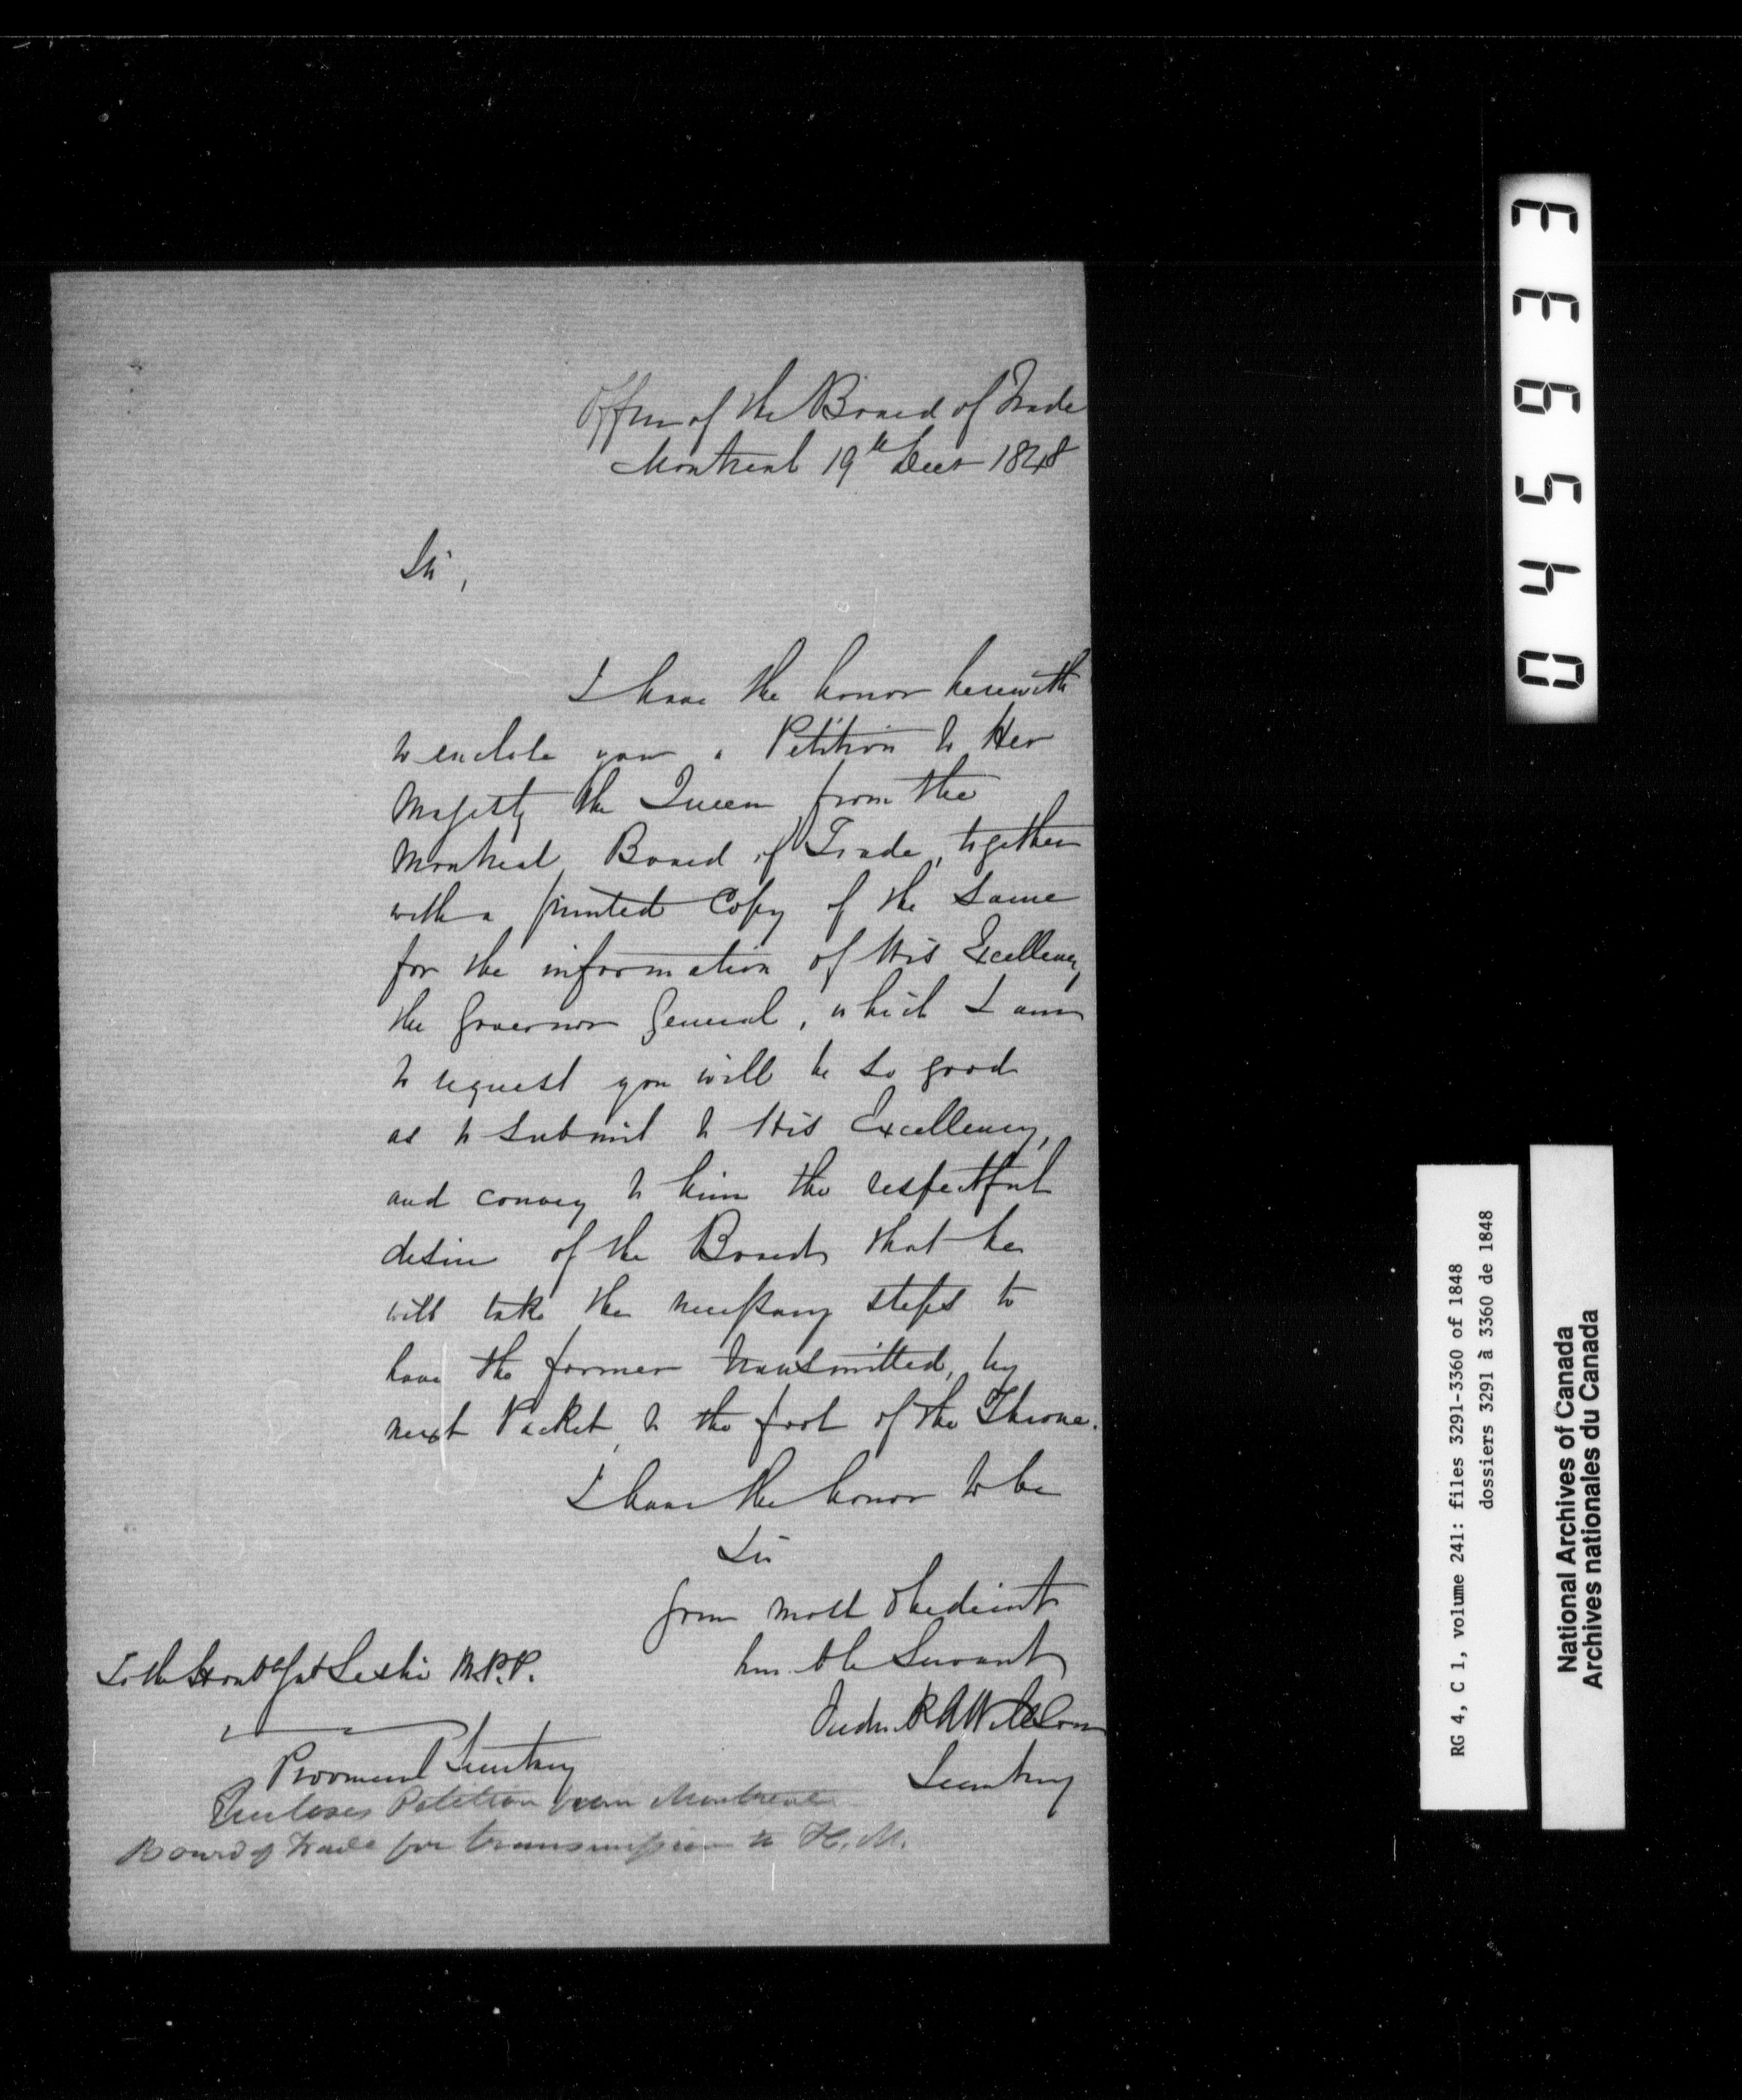 Office of the Board of Trade
Montreal 19th Decr 1848
Sir,
I have the honor herewith
to enclose you a Petition to Her
Majesty the Queen from the
Montreal Board of Trade, together
with a printed Copy of the same
for the information of His Excellency
the Governor General, which I am
to request you will be so good
as to submit to His Excellency,
and convey to him the respectful
desire of the Board that he
will take the necessary steps to
have the former transmitted, by
next Packet, to the foot of the Throne.
I have the honor to be
Sir
Your most obedient
humble Servant
Willson
Secretary
To the Honble Jas Leslie M.P.P.
Provincial Secretary
Encloses Petition from Montreal
Board of Trade for transmission to H.M.
045963
RG 4, C 1, volume 241: files 3291-3360 of 1848
dossiers 3291 à 3360 de 1848
National Archives of Canada
Archives nationales du Canada